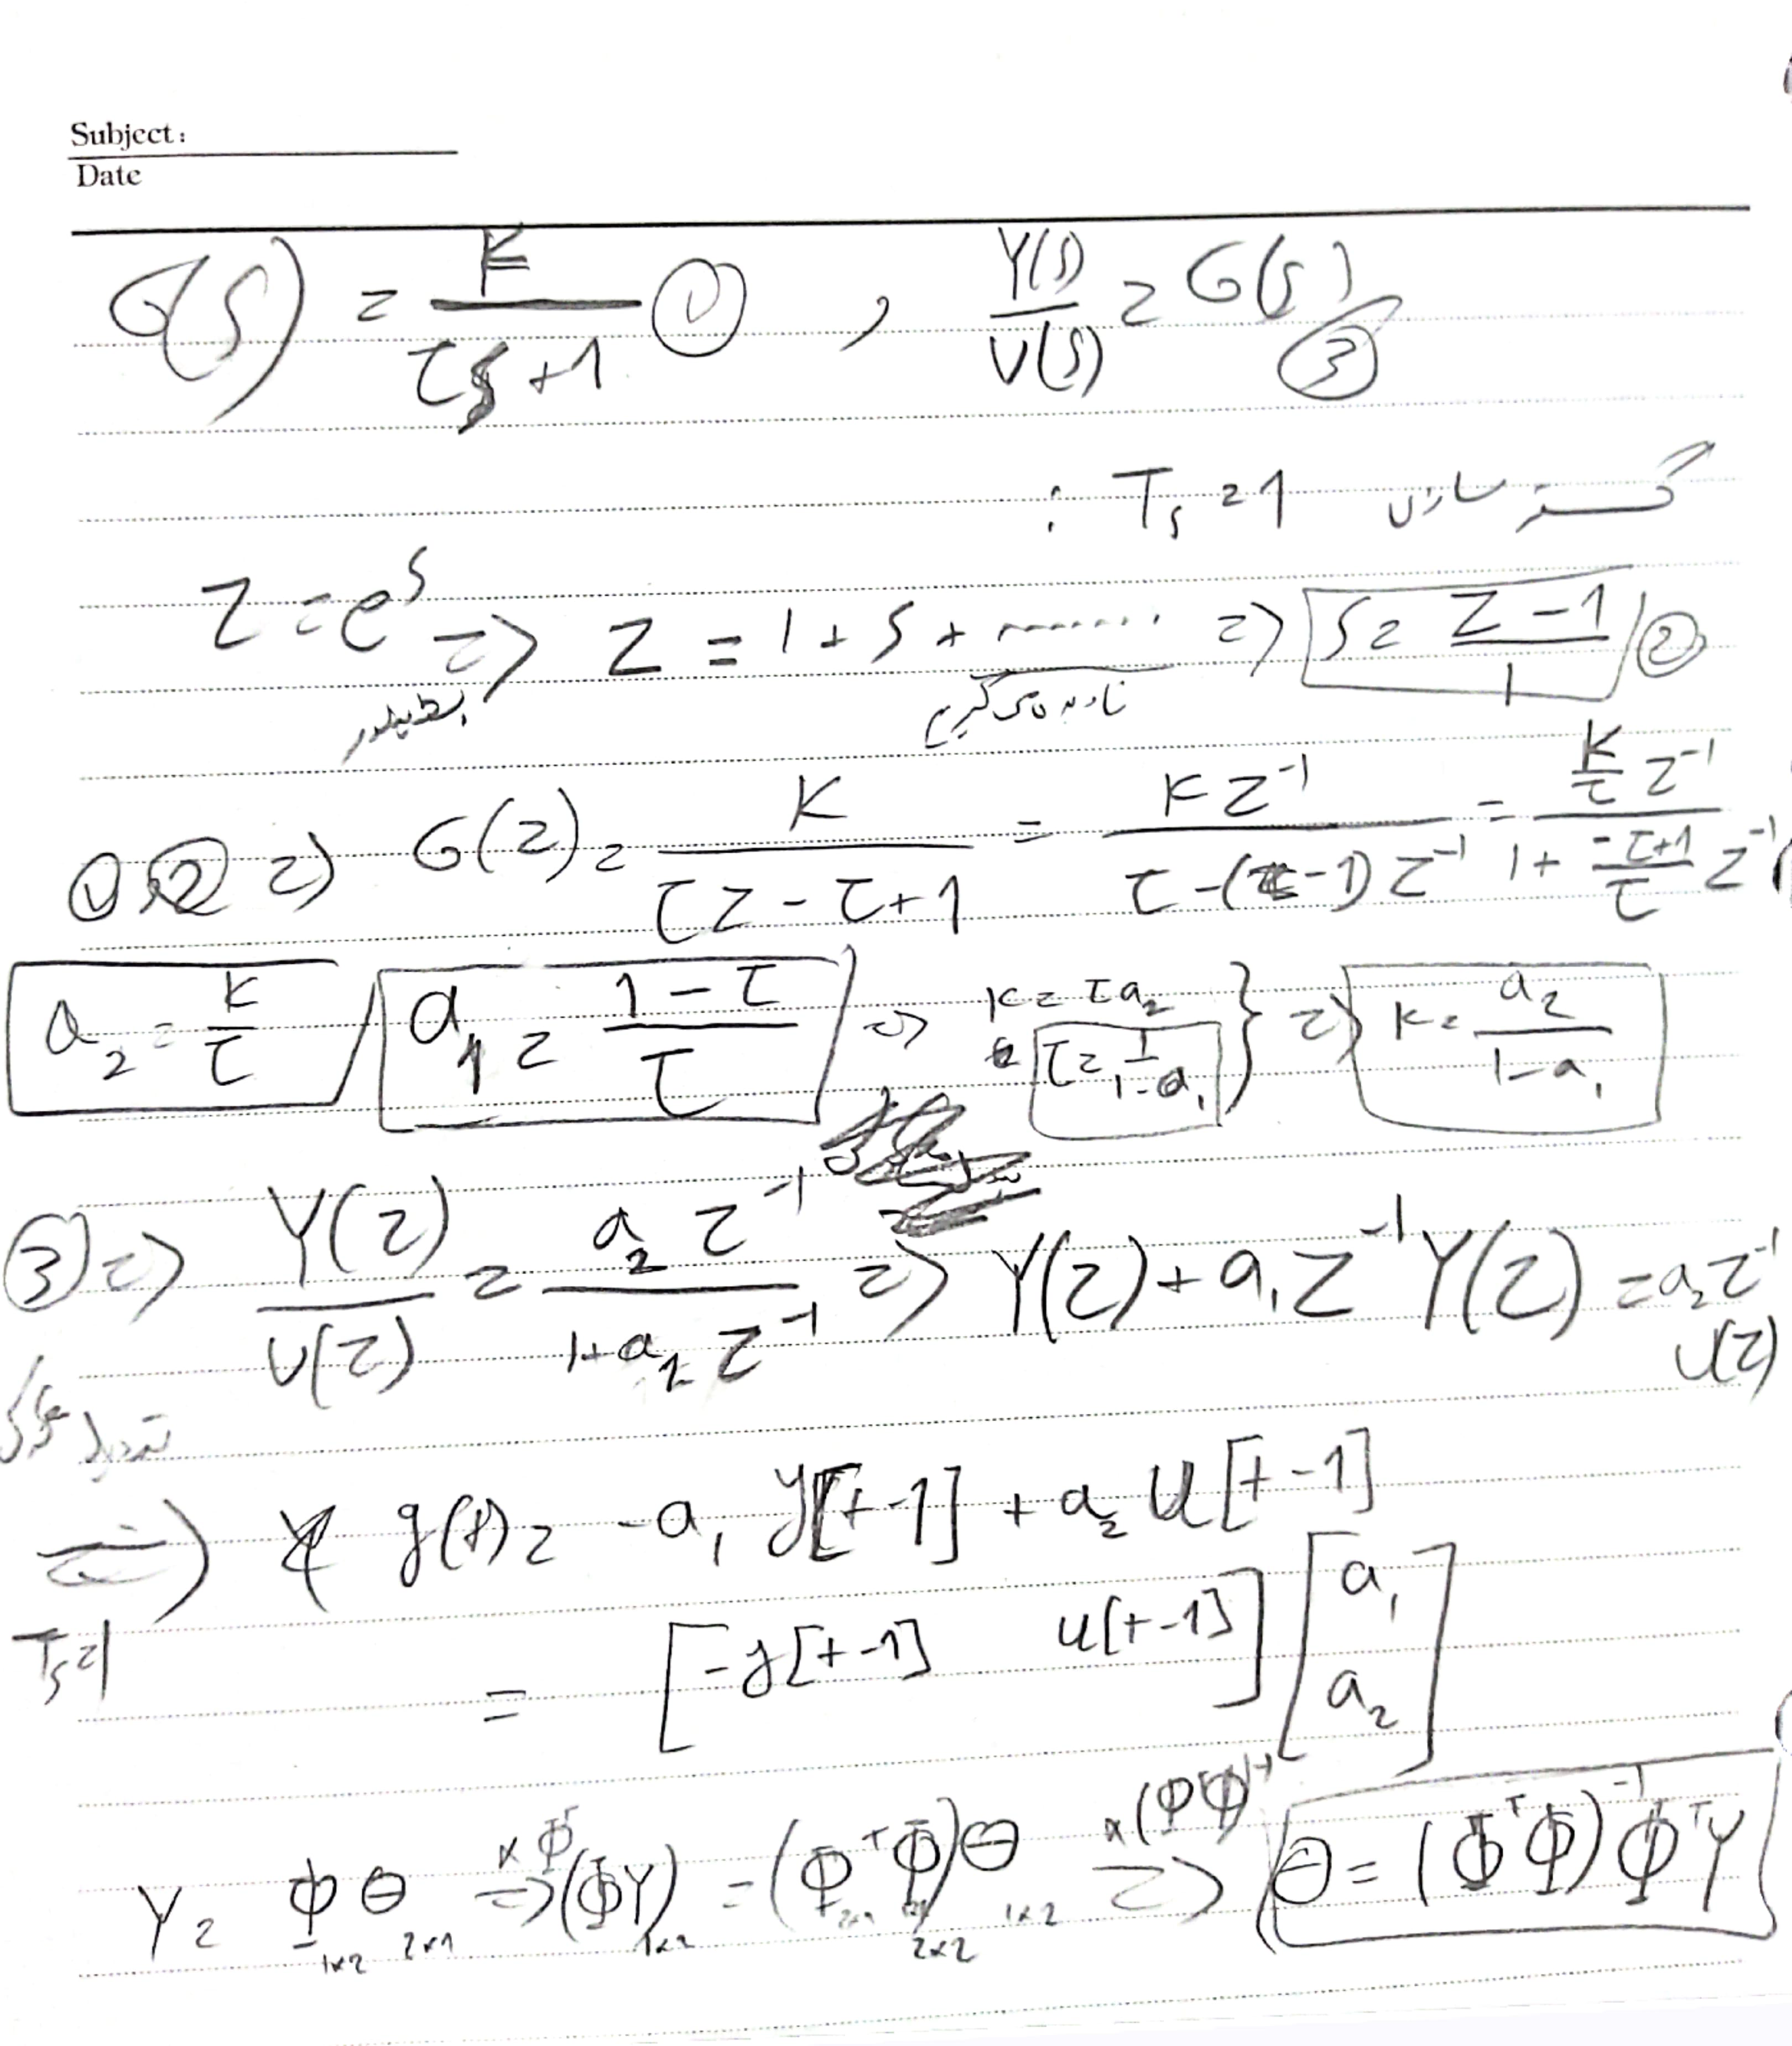 Subject:
Date
G(s) = K / (τs + 1) ① , Y(s) / U(s) = G(s) ③
گسسته سازی Ts = 1 :
Z = e^s ⇒ Z = 1 + s + ........ ⇒ s = (Z - 1) / 1 ②
بسط تیلور نادیده می گیریم
①,② ⇒ G(z) = K / (τz - τ + 1) = K z^-1 / (τ - (τ - 1) z^-1) = (K/τ) z^-1 / (1 + ((-τ+1)/τ) z^-1)
a₂ = K/τ , a₁ = (1 - τ)/τ ⇒ K = τa₂ , τ = 1/(1 - a₁) } ⇒ K = a₂/(1 - a₁)
③ ⇒ Y(z) / U(z) = a₂ z^-1 / (1 + a₁ z^-1) ⇒ Y(z) + a₁ z^-1 Y(z) = a₂ z^-1 U(z)
⇒ Ts=1 y(t) = -a₁ y[t-1] + a₂ u[t-1]
= [-y[t-1] u[t-1]] [a₁ a₂]
Y = Φ 1×2 θ 2×1 ×Φ^T ⇒ (ΦY) = (Φ^T Φ) 2×2 θ 1×2 ×(ΦΦ)^-1 ⇒ θ = (Φ^T Φ)^-1 Φ^T Y